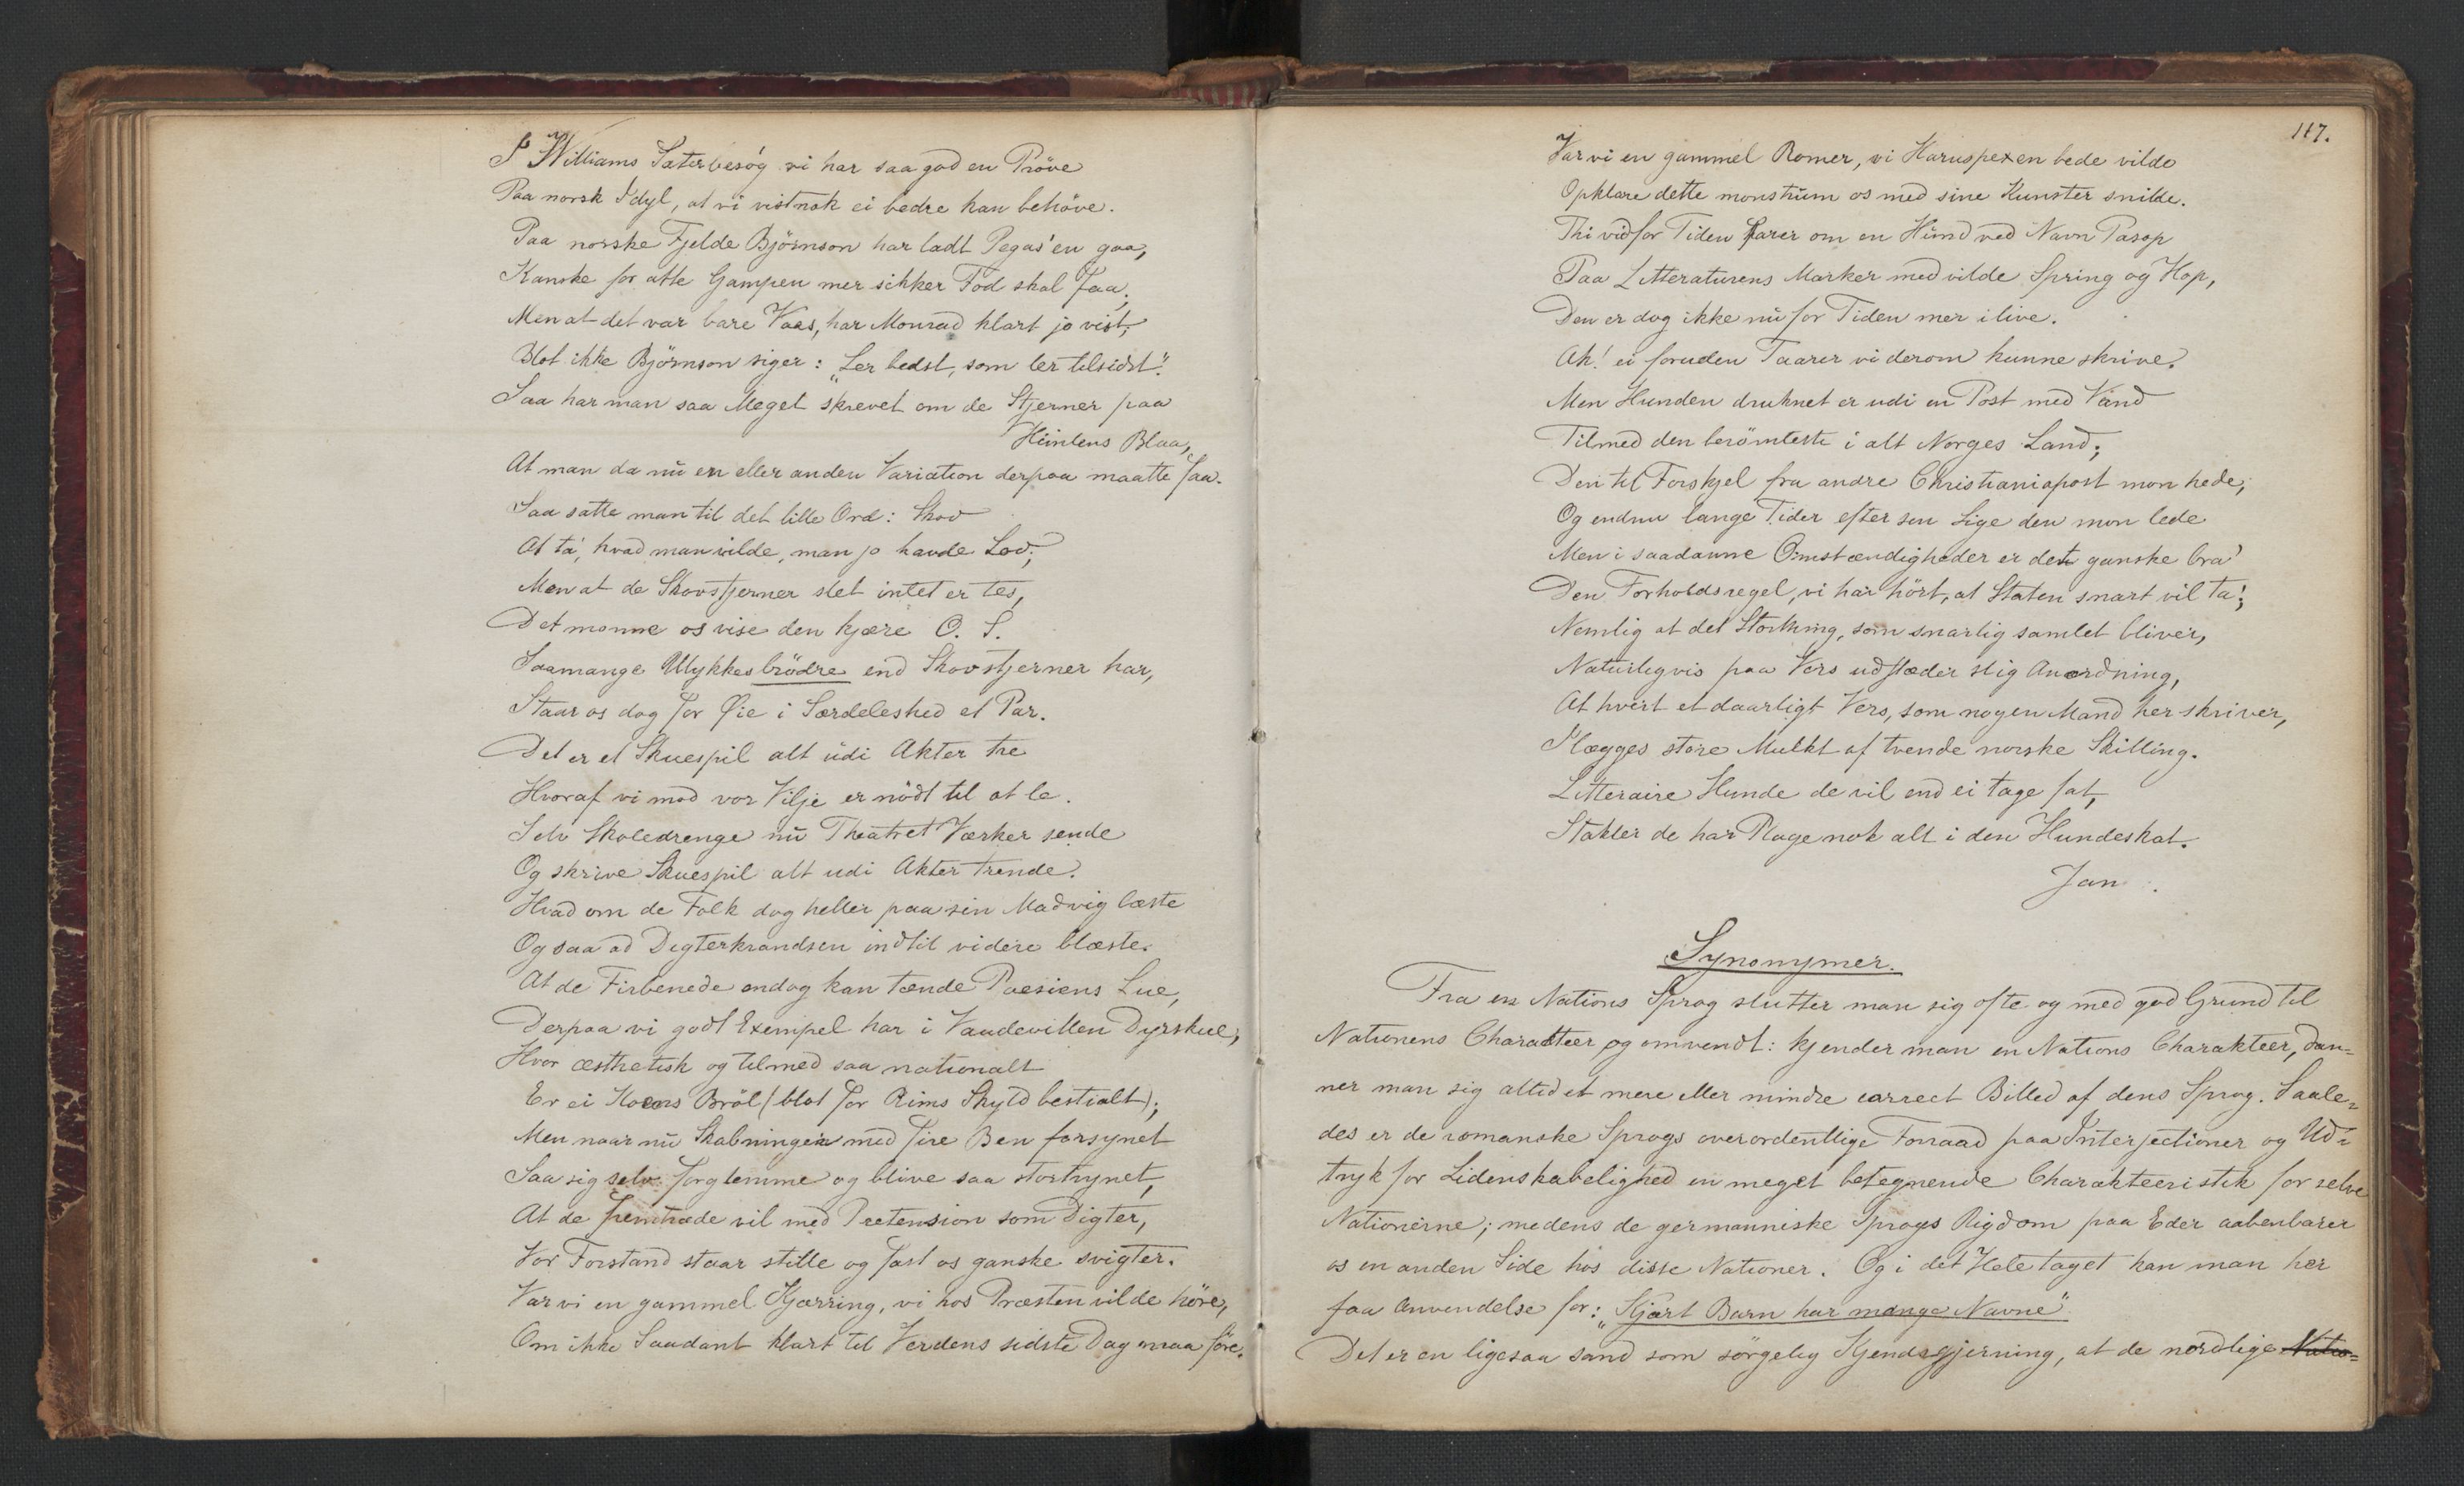 I Williams Sæterbesøg vi har saa god en Pröve
Paa norsk Idyl, at vi vistnok ei bedre kan behöve.
Paa norske Fjelde Björnson har ladt Pegas'en gaa,
Kanske for atte Gampen mer sikker Fod skal faa;
Men at det var bare Vaas, har Monrad klart jo vist,
Blot ikke Björnson siger: „Ler bedst, som ler tilsidst".
Saa har man saa Meget skrevet om de Stjerner paa
Himlens Blaa,
At man da nu en eller anden Variation derpaa maatte faa.
Saa satte man til det lille Ord: Skov
At ta', hvad man vilde, man jo havde Lov;
Men at de Skovstjerner slet intet er tes,
Det monne os vise den kjære O. S.
Saamange Ulykkesbrödre end Skovstjerner har,
Staar os dog for Øie i Særdeleshed et Par.
Det er et Skuespil alt udi Akter tre
Hvoraf vi mod vor Vilje er nödt til at le.
Selv Skoledrenge nu Theatret Værker sende
Og skrive Skuespil alt udi Akter trende.
Hvad om de Folk dog heller paa sin Madvig læste
Og saa ad Digterkrandsen indtil videre blæste.
At de Firbenede endog kan tænde Poesiens Lue,
Derpaa vi godt Exempel har i Vaudevillen Dyrskue,
Hvor æsthetisk og tilmed saa nationalt
Er ei Koens Bröl (blot for Rims Skyld bestialt);
Men naar nu Skabningen med fire Ben forsynet
Saa sig selv forglemme og blive saa stortrynet,
At de fremtræde vil med Pretension som Digter,
Vor Forstand staar stille og fast os ganske svigter.
Var vi en gammel Kjærring, vi hos Præsten vilde höre,
Om ikke Saadant klart til Verdens sidste Dag maa före.
117.
Var vi en gammel Romer, vi Haruspexen bede vilde
Opklare dette monstrum os med sine Kunster snilde.
Thi vid for Tiden farer om en Hund ved Navn Pasop
Paa Litteraturens Marker med vilde Spring og Hop,
Den er dog ikke nu for Tiden mer ilive.
Ak! ei foruden Taarer vi derom kunne skrive.
Men Hunden druknet er udi en Post med Vand
Tilmed den berömteste i alt Norges Land;
Den til Forskjel fra andre Christianiapost mon hede,
Og endnu lange Tider efter sen Lige den mon lede
Men i saadanne Omstændigheder er det ganske bra'
Den Forholdsregel, vi har hört, at Staten snart vil ta';
Nemlig at det Storthing, som snarlig samlet bliver,
Naturligvis paa Vers udstæder slig Anordning,
At hvert et daarligt Vers, som nogen Mand her skriver,
Ilægges store Mulkt af tvende norske Skilling.
Litteraire Hunde de vil end ei tage fat,
Stakler de har Plage nok alt i den Hundeskat.
Jan.
Synonymer.
Fra en Nations Sprog slutter man sig ofte og med god Grund til
Nationens Charakteer og omvendt: kjender man en Nations Charakteer, dan-
ner man sig altid et mere eller mindre correct Billed af dens Sprog. Saale-
des er de romanske Sprogs overordentlige Forraad paa Interjectioner og Ud-
tryk for Lidenskabelighed en meget betegnende Charakteeristik for selve
Nationerne; medens de germanniske Sprogs Rigdom paa Eder aabenbarer
os en anden Side hos disse Nationer. Og i det Hele taget kan man her
faa Anvendelse for: „Kjært Barn har mange Navne".
Det er en ligesaa sand som sörgelig Kjendsgjerning, at de nordlige Natio-